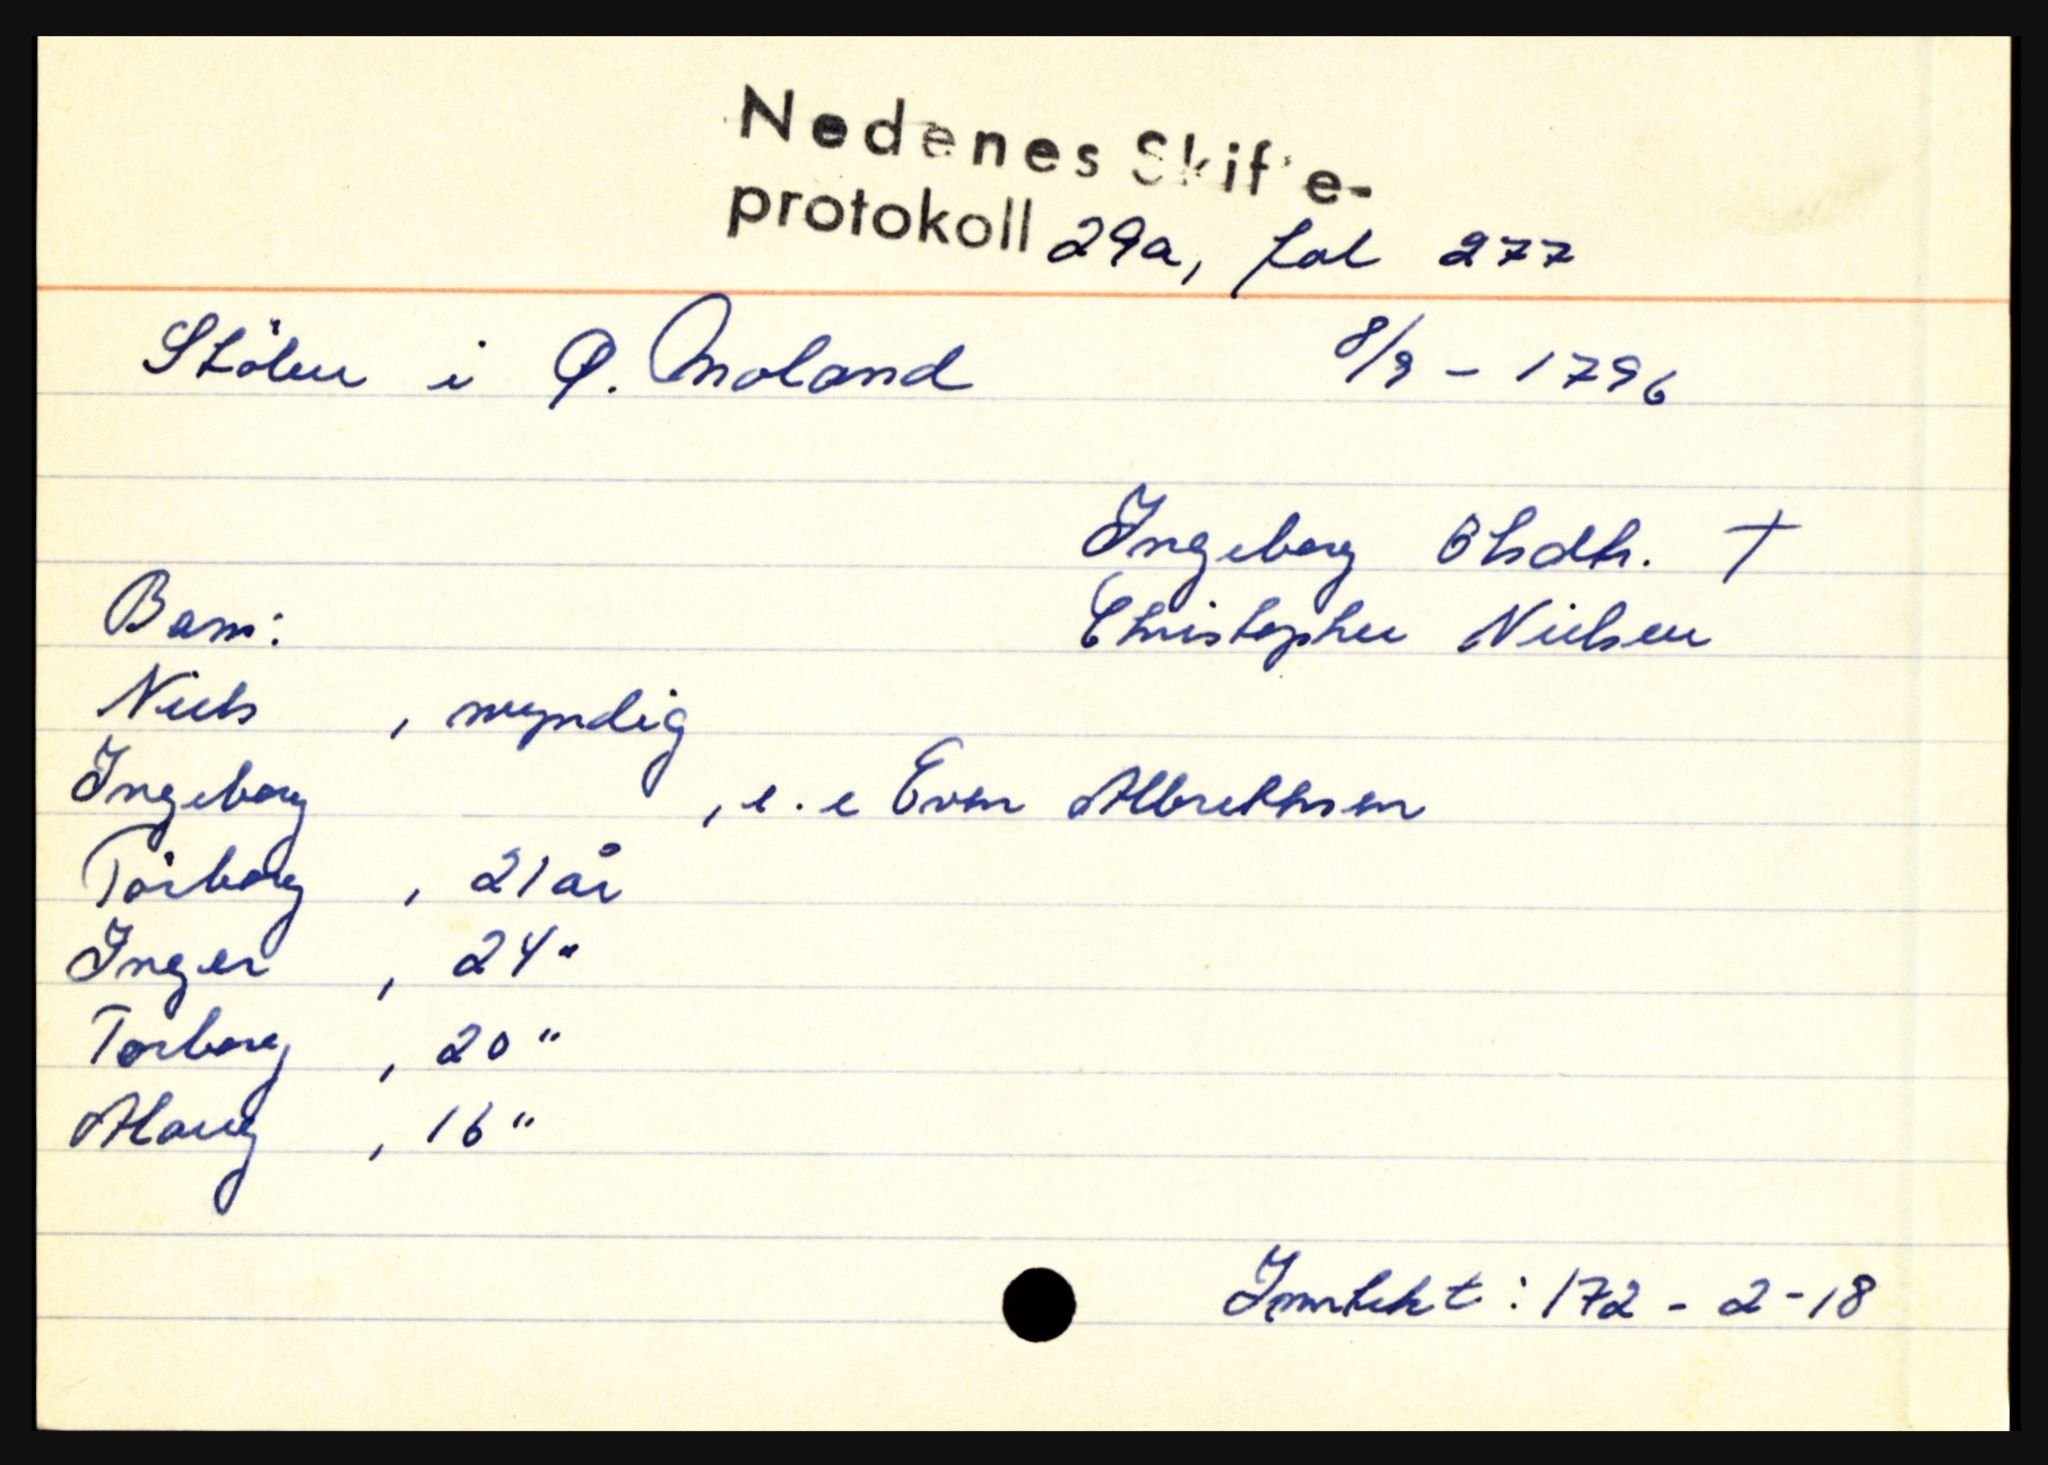 Nedenes Skifte-
protokoll 29a, fol 277
Stölen i Ø. Moland 8/9 - 1796
Ingeborg Olsdtr. †
Barn: Christopher Nielsen
Niels , myndig
Ingeborg , e. e Even Albrethsen
Torborg , 21 år
Inger , 24 "
Torborg , 20 "
Alowg , 16 "
Inntekt : 172 - 2 - 18